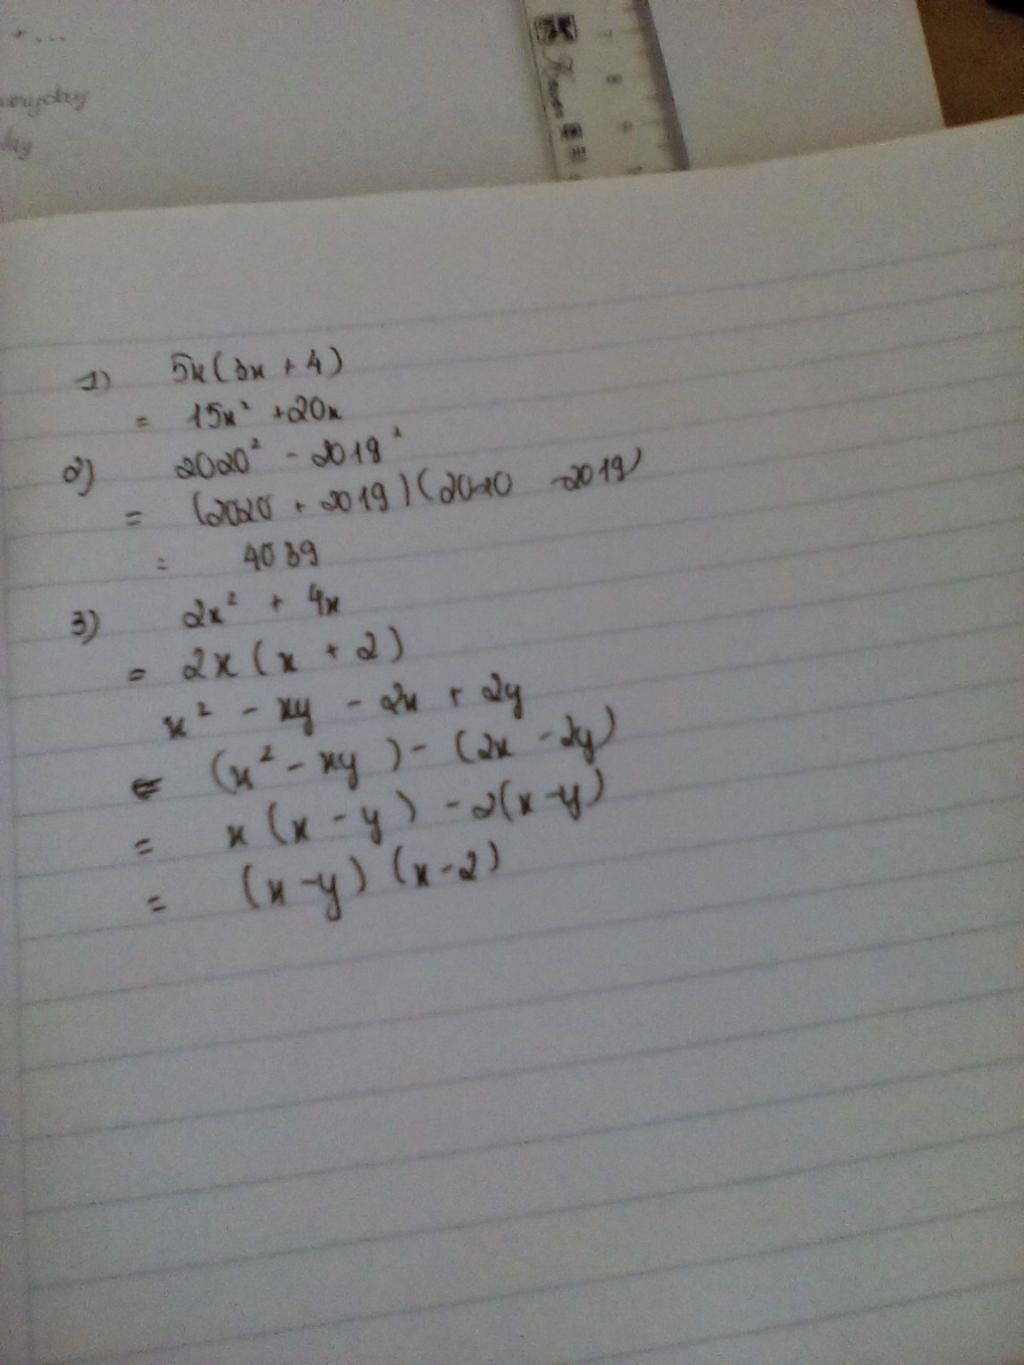 + ...
everyday
day
1) 5x(3x + 4)
= 15x² + 20x
2) 2020² - 2019²
= (2020 + 2019)(2020 - 2019)
= 4039
3) 2x² + 4x
= 2x(x + 2)
x² - xy - 2x + 2y
= (x² - xy) - (2x - 2y)
= x(x - y) - 2(x - y)
= (x - y)(x - 2)